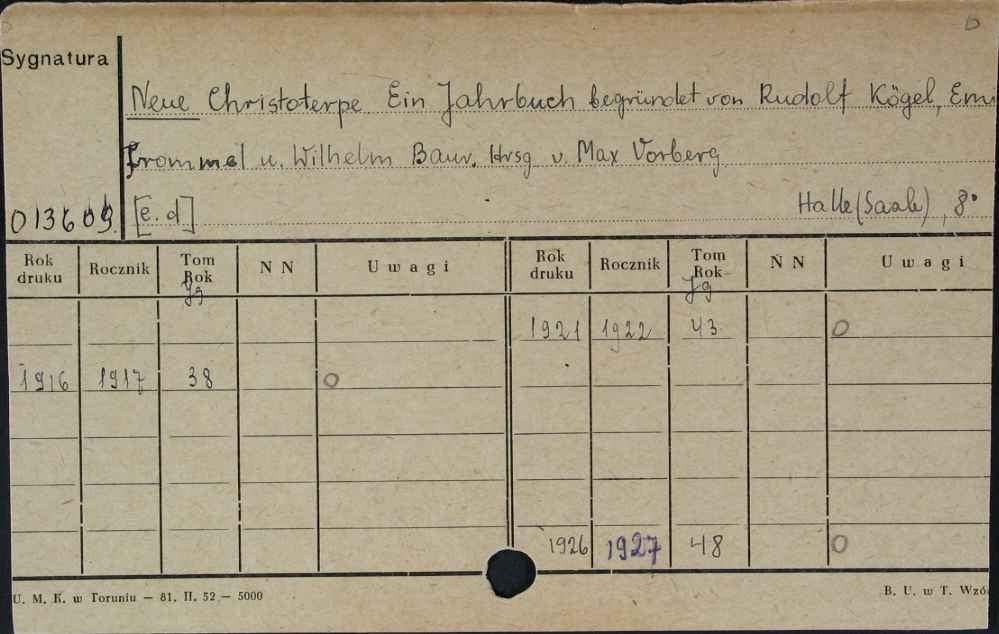 Sygnatura
Neue Christoterpe. Ein Jahrbuch begründet von Rudolf Kögel, Emi
Frommel u. Wilhelm Baur. Hrsg v. Max Vorberg
013609 [e. d] Halle (Saale), 8°
Rok druku Rocznik Tom Rok Jg N N Uwagi Rok druku Rocznik Tom Rok Jg N N Uwagi
1921 1922 43 O
1916 1917 38 O
1926 1927 48 O
U. M. K. w Toruniu — 81. II. 52 — 5000 B. U. w T. Wzó